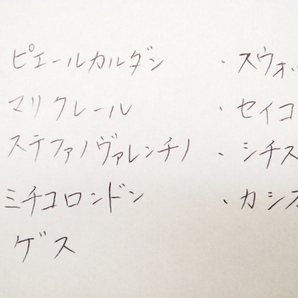 ピエールカルダン
マリクレール
ステファノヴァレンチノ
ミチコロンドン
ゲス
・スウォ
・セイコ
・シチス
・カシオ